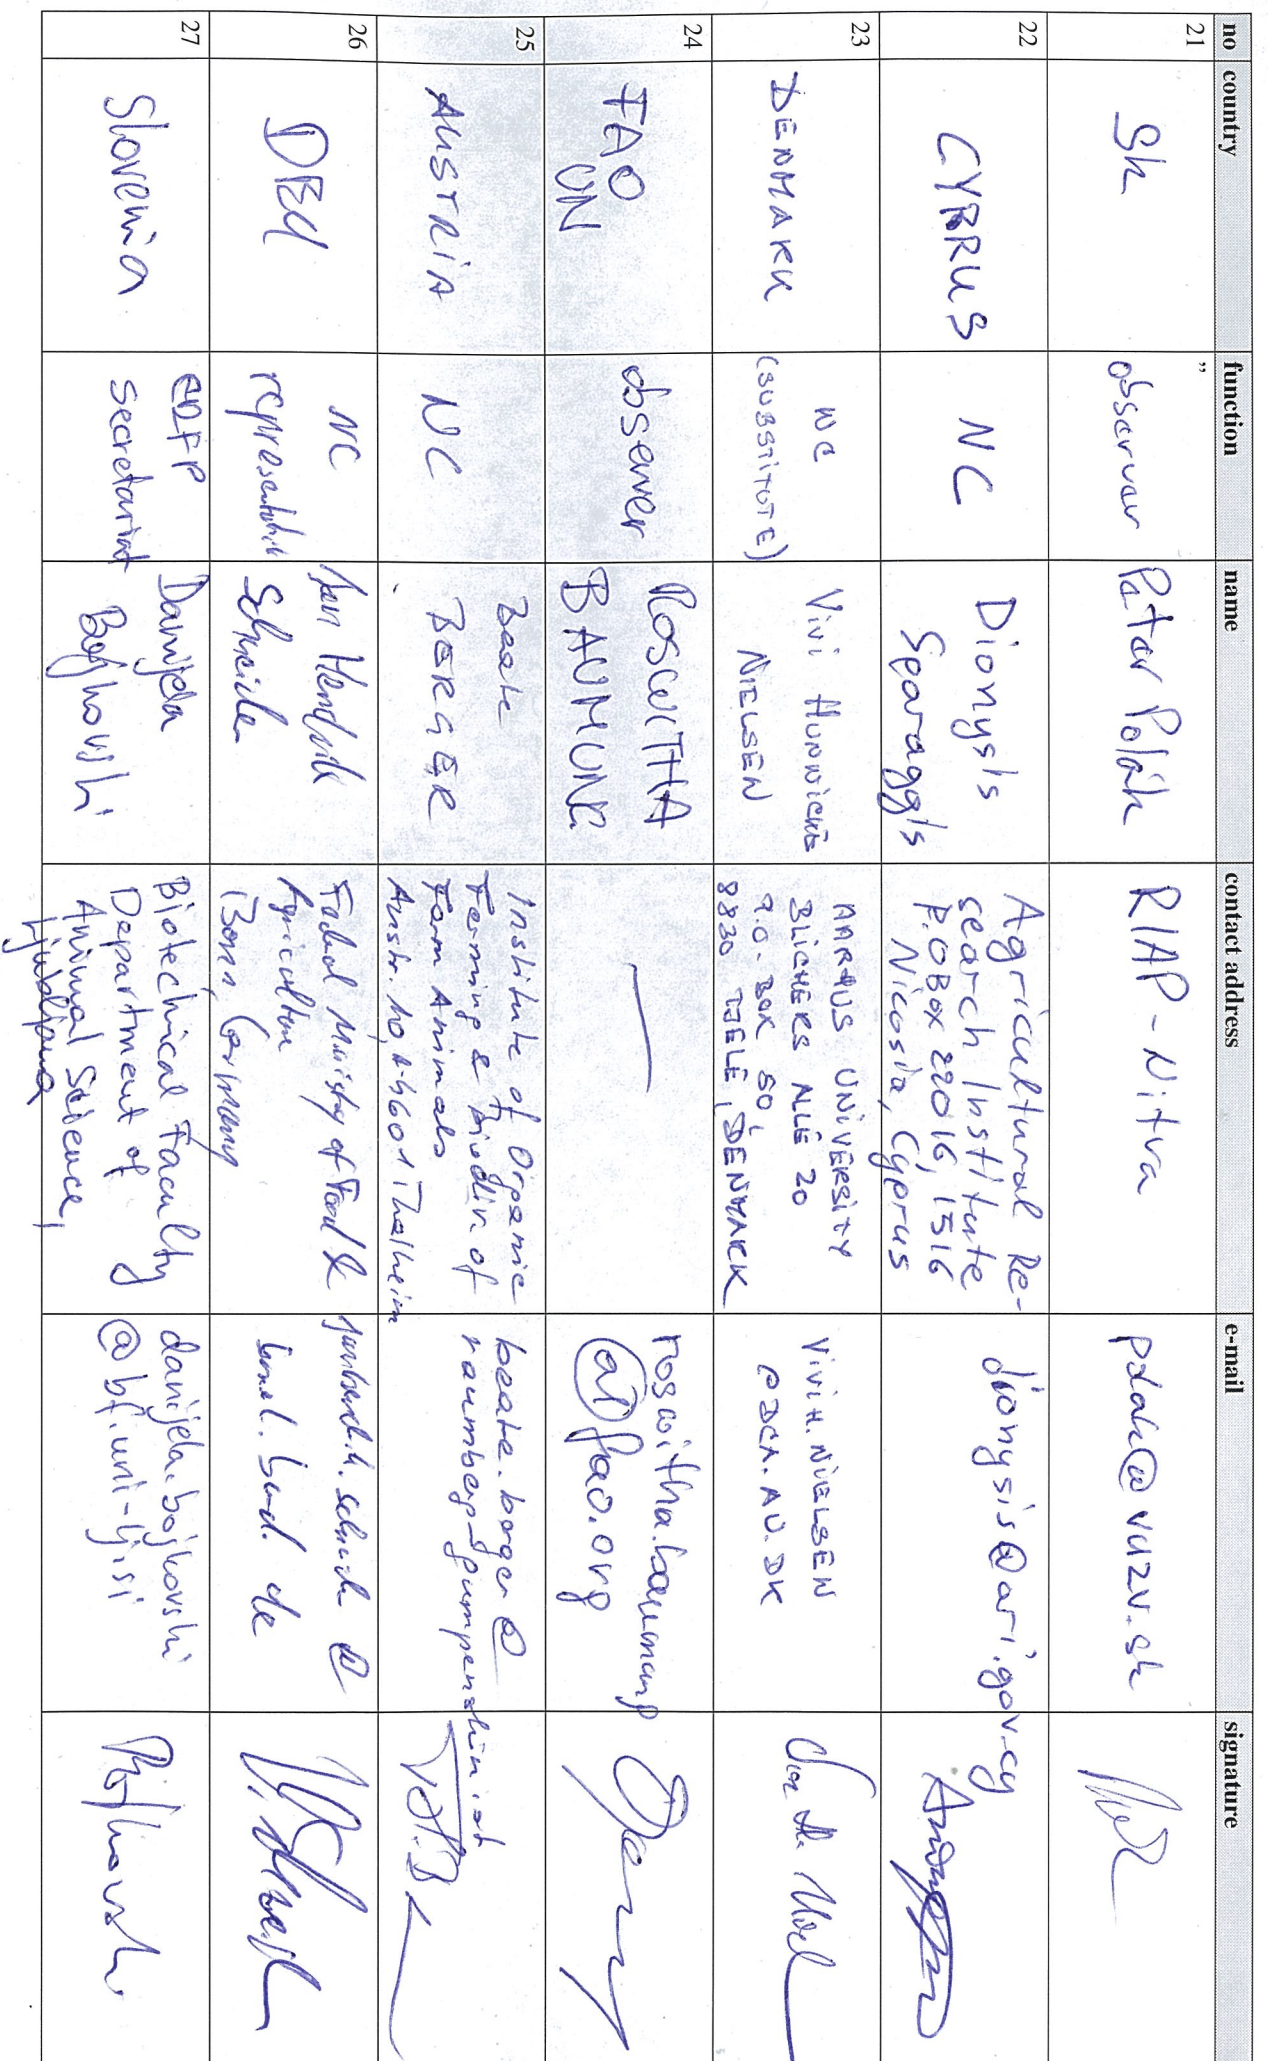 no country function name contact address e-mail signature
21 SK observer Peter Polák RIAP - Nitra polak@vuzv.sk
"
22 CYPRUS NC Dionysis Sparaggis
Agricultural Re-
search Institute
P.O Box 22016, 1516
Nicosia, Cyprus
dionysis@ari.gov.cy
23 DENMARK NC
(SUBSTITUTE)
Vivi Hunnicke
NIELSEN
AARHUS UNIVERSITY
BLICHERS ALLÉ 20
P.O. BOX 50,
8830 TJELE, DENMARK
ViviH.NIELSEN
@DCA.AU.DK
24 FAO
UN
observer
ROSWITHA
BAUMUNG
roswitha.baumung
@fao.org
25 AUSTRIA NC
Beate
BERGER
Institute of Organic
Farming & Biodiv. of
Farm Animals
Austr. 10, A-4601 Thalheim
beate.berger@
raumberg-gumpenstein.at
26 DEU
NC
representative
Jan Hendrik
Schneider
Federal Ministry of Food &
Agriculture
Bonn, Germany
bmel.bund.de
27 Slovenia
ERFP
secretariat
Danijela
Bojkovski
Biotechnical Faculty
Department of
Animal Science,
Ljubljana
danijela.bojkovski
@bf.uni-lj.si